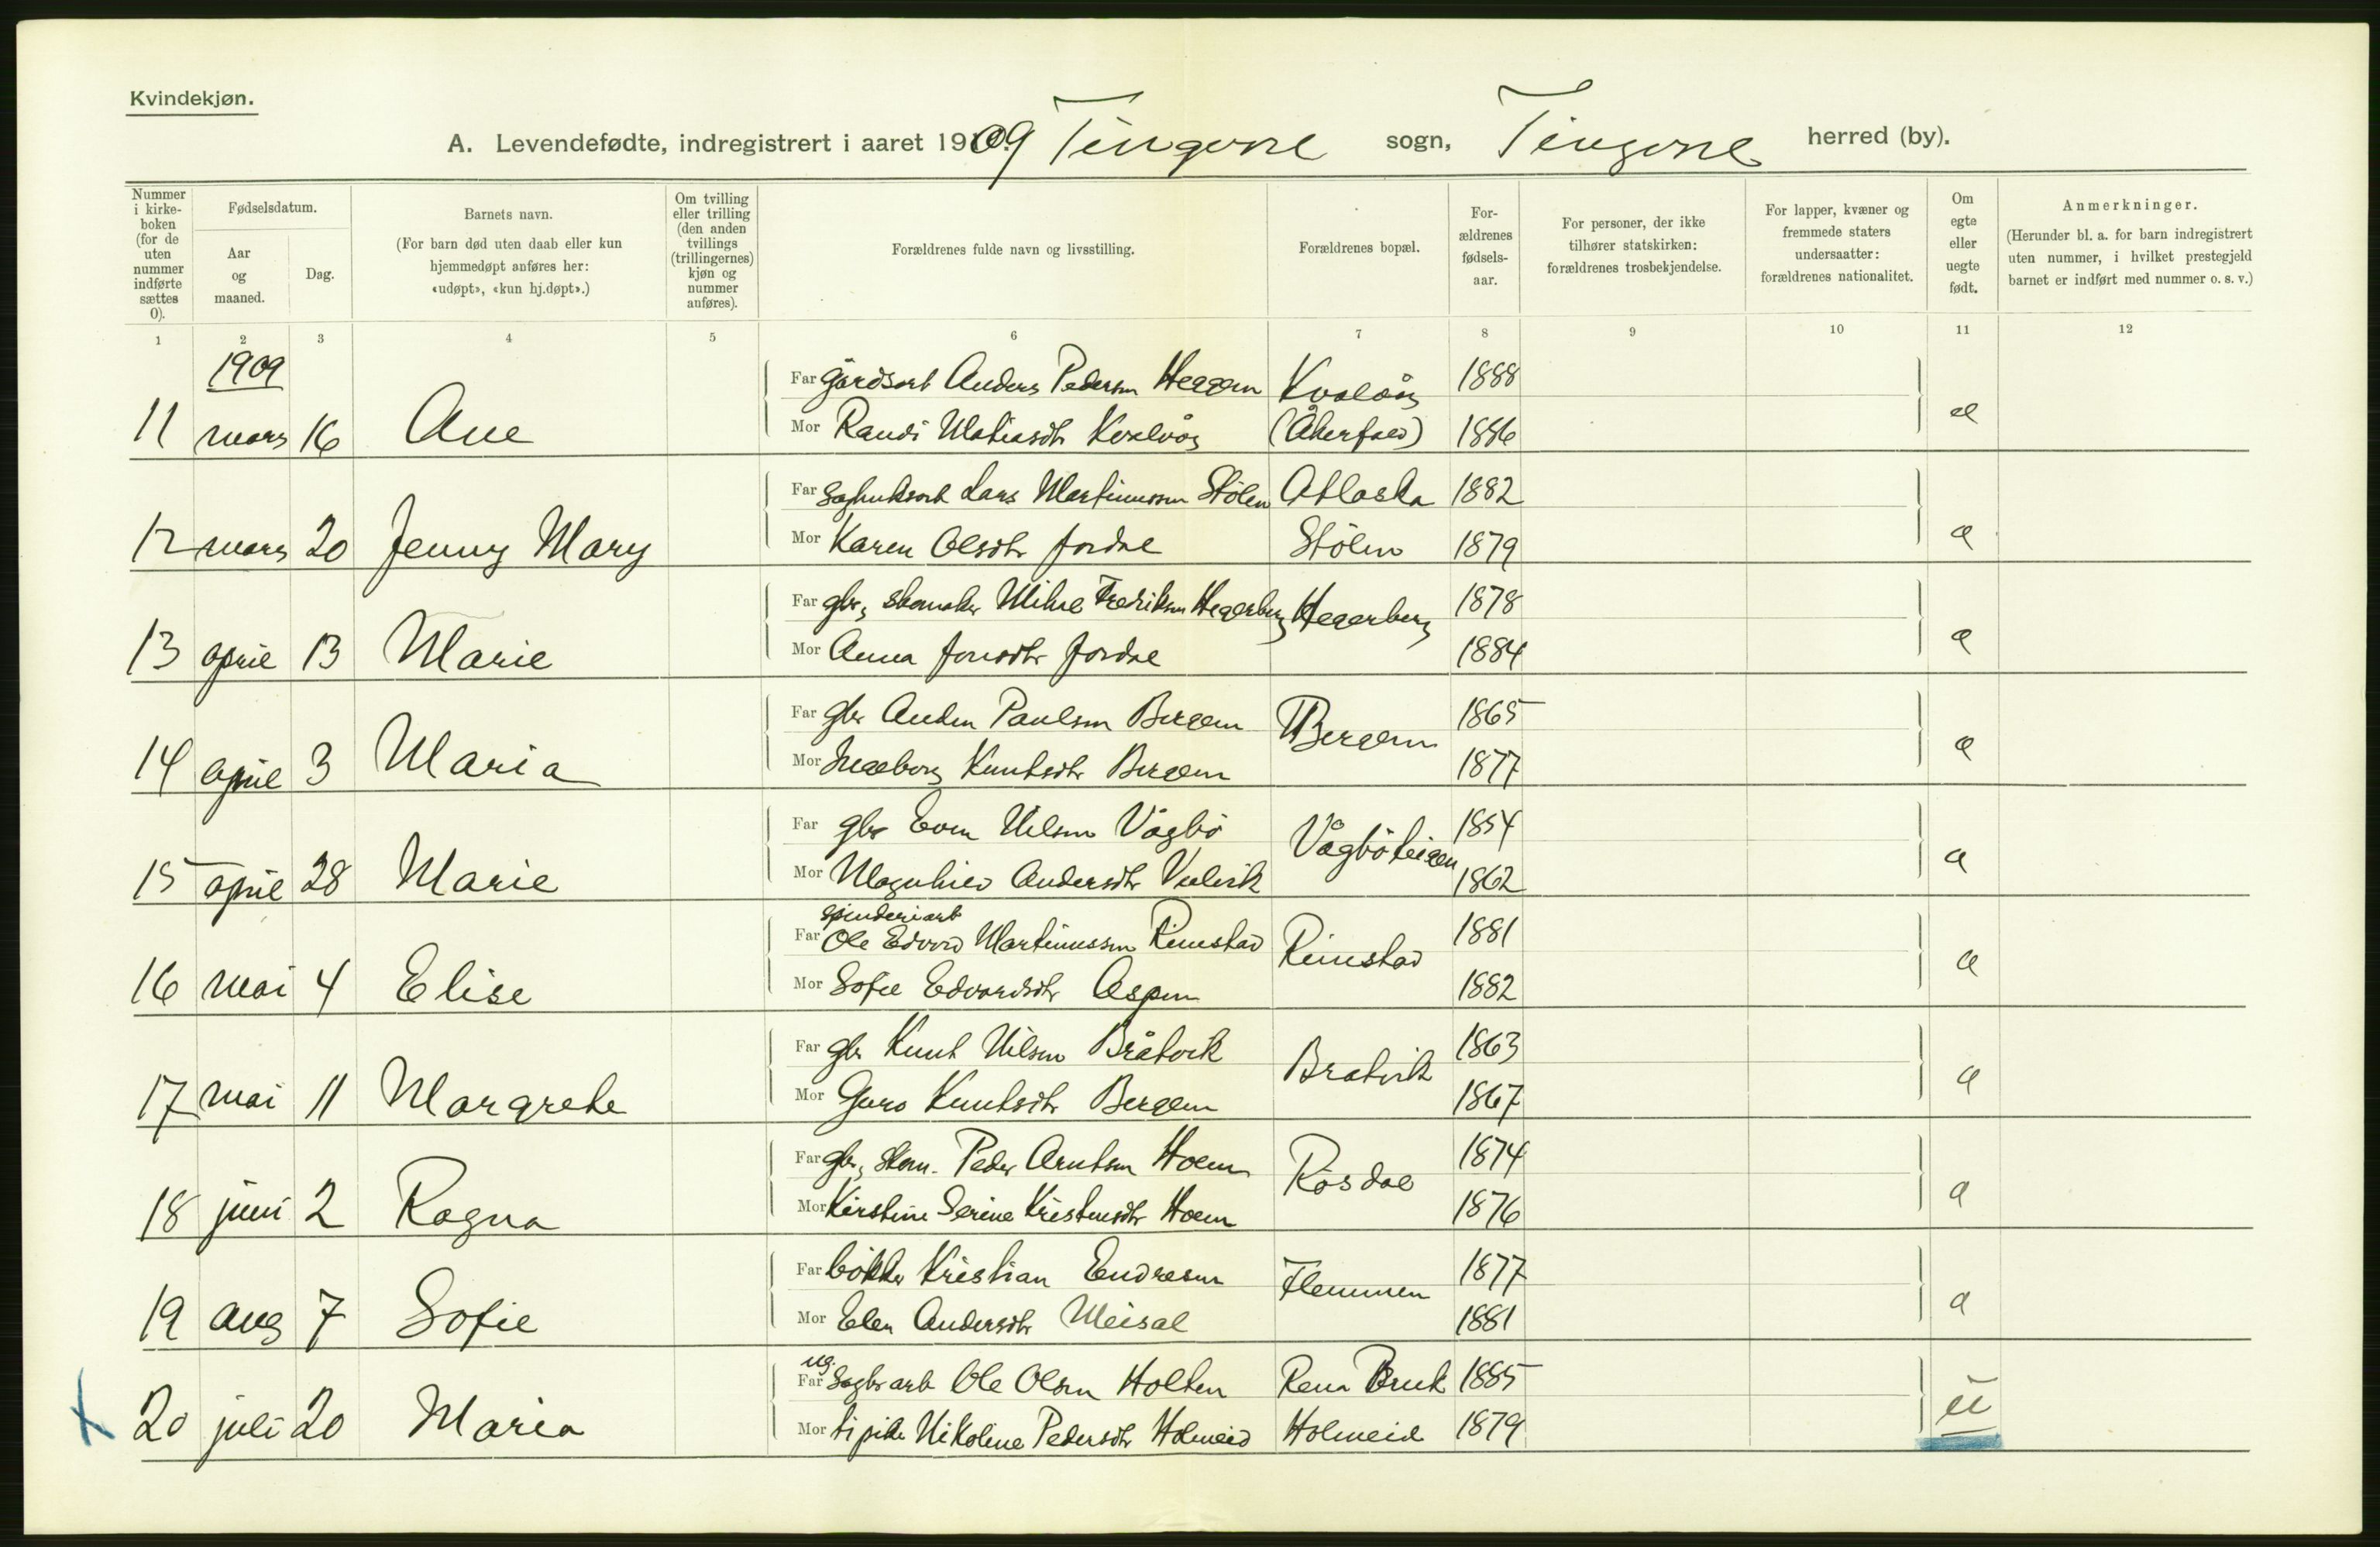 Kvindekjøn.
A. Levendefødte, indregistrert i aaret 1909 Tingvoll sogn, Tingvoll herred (by).
Nummer i kirkeboken (for de uten nummer indførte sættes 0).
Fødselsdatum.
Aar og maaned.
Dag.
Barnets navn.
(For barn død uten daab eller kun hjemmedøpt anføres her: «udøpt», «kun hj.døpt».)
Om tvilling eller trilling (den anden tvillings (trillingernes) kjøn og nummer anføres).
Forældrenes fulde navn og livsstilling.
Forældrenes bopæl.
Forældrenes fødselsaar.
For personer, der ikke tilhører statskirken: forældrenes trosbekjendelse.
For lapper, kvæner og fremmede staters undersaatter: forældrenes nationalitet.
Om egte eller uegte født.
Anmerkninger.
(Herunder bl. a. for barn indregistrert uten nummer, i hvilket prestegjeld barnet er indført med nummer o. s. v.)
1 2 3 4 5 6 7 8 9 10 11 12
1909
Far gårdsarb Anders Pedersen Heggem Kvalvåg 1888
11 mars 16 Ane Mor Randi Matiasdtr Kvalvåg 1886 e
Far sagbruksarb Lars Martinussen Stölen Atlaska 1882
12 mars 20 Jenny Mary Mor Karen Olsdtr Jordal Stölen 1879 e
Far gbr, skomaker Mikal Fredriksen Hegerberg Hegerberg 1878
13 april 13 Marie Mor Anna Jonsdtr Jordal 1884 e
Far gbr Anders Paulsen Bergem Bergem 1865
14 april 3 Maria Mor Ingeborg Knutsdtr Bergem 1877 e
Far gbr Even Nilsen Vågbö Vågböteigen 1854
15 april 28 Marie Mor Magnhild Andersdtr 1862 e
spinderiarb
Far Ole Edvard Martinussen Rimstad Rimstad 1881
16 mai 4 Elise Mor Sofie Edvardsdtr Aspen 1882 e
Far gbr Knut Nilsen Bråtvik Bratvik 1863
17 mai 11 Margrete Mor Guro Knutsdtr Bergem 1867 e
Far gbr, skom. Peder Arntsen Hoem Rösdal 1874
18 juni 2 Ragna Mor Kirstine Serine Kristensdtr Hoem 1876 e
Far bökker Kristian Endresen Flemmen 1877
19 aug 7 Sofie Mor Elen Andersdtr Meisal 1881 e
ug.
Far Sagbrarb Ole Olsen Holten Rena Bruk 1885
20 juli 20 Maria Mor tj pike Nikoline Pedersdtr Holmeid Holmeid 1879 u